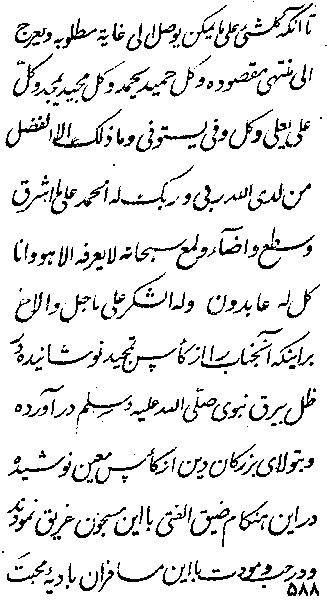 تا آنکه کلشئ علی ما یمکن یوصل الی غایة مطلوبه و یعرج
الی منتهی مقصوده و کل حمید یحمد و کل مجید یمجد و کل
علی یعلی و کل وفی یستوفی و ما ذلک الا الفضل
من لدی الله ربی و ربک له الحمد علی ما اشرق
و سطع و اضاء و لمع سبحانه لا یعرفه الا هو وانا
کل له عابدون وله الشکر علی ما جل و الاغ
براینکه آنجناب را از کأس تمجید نوشانیده و
ظل بیرق نبوی صلی الله علیه وسلم درآورده
و بتولای بزرکان دین از کأس معین نوشیده
در این هنکام ضیق الفتی با این مسجون خریق نمودند
و درحب و مودت با این مسافران بادیهٔ محبت
۵۸۸